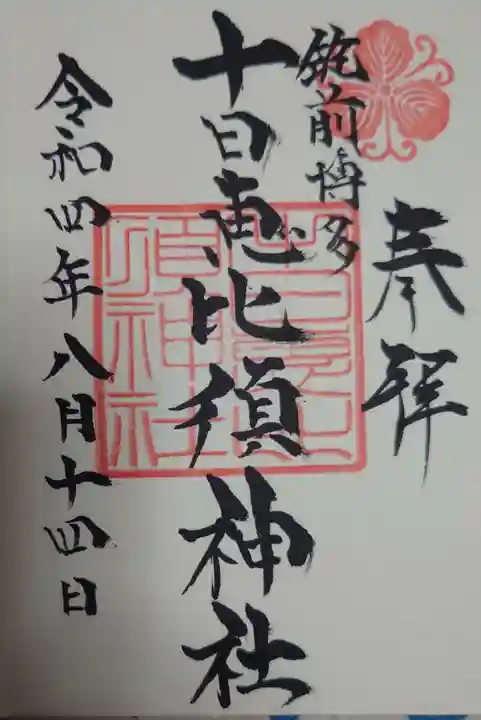 奉拝
筑前博多
十日恵比須神社
令和四年八月十四日
十日恵比須神社